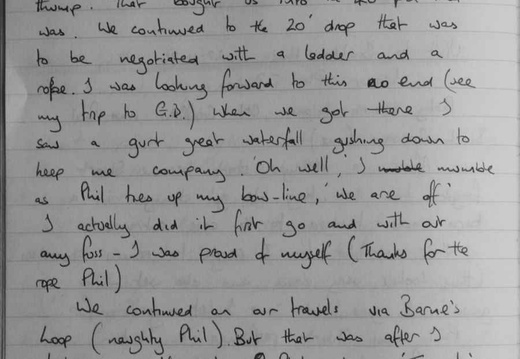 thump. That bought us
was. We continued to the 20' drop that was
to be negotiated with a ladder and a
rope. I was looking forward to this no end (see
my trip to G.B.) when we got there I
saw a gurt great waterfall gushing down to
keep me company. 'Oh well,' I mumble mumble
as Phil ties up my bow-line, 'we are off'
I actually did it first go and with out
any fuss - I was proud of myself (Thanks for the
rope Phil)
We continued on our travels via Barne's
Loop (naughty Phil). But that was after I